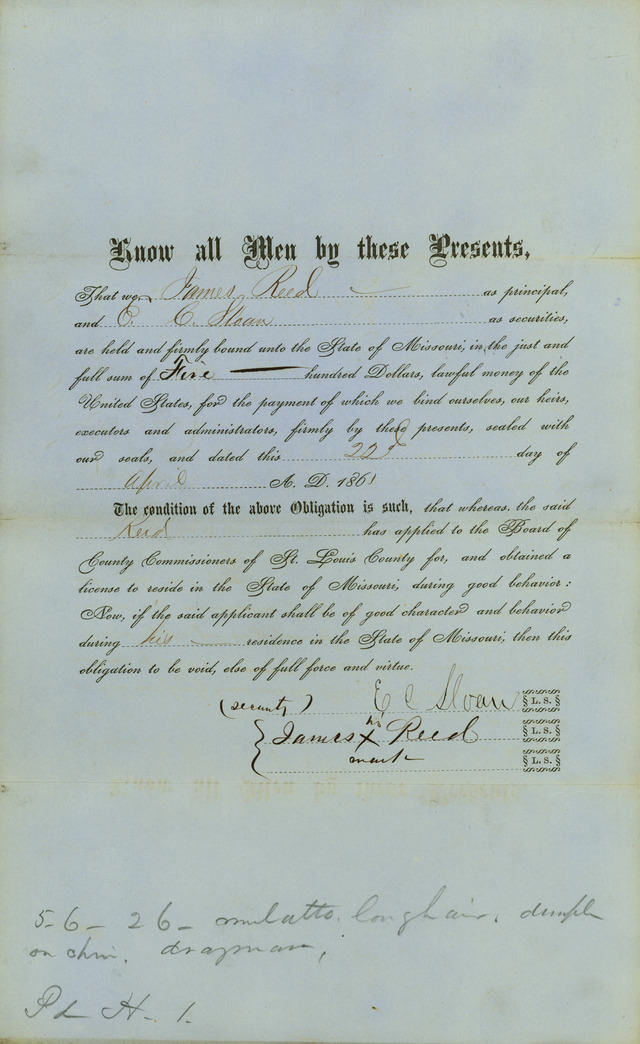 Know all Men by these Presents,
That we, James Reed as principal,
and E. C. Sloan as securities,
are held and firmly bound unto the State of Missouri, in the just and
full sum of Five hundred Dollars, lawful money of the
United States, for the payment of which we bind ourselves, our heirs,
executors and administrators, firmly by these presents, sealed with
our seals, and dated this 22d day of
April A. D. 1861
The condition of the above Obligation is such, that whereas, the said
Reed has applied to the Board of
County Commissioners of St. Louis County for, and obtained a
license to reside in the State of Missouri, during good behavior:
Now, if the said applicant shall be of good character and behavior
during his residence in the State of Missouri, then this
obligation to be void, else of full force and virtue.
(security) E C Sloan L. S.
his
James X Reed L. S.
mark L. S.
5-6- 26- mulatto. long hair, dimple
on chin. drayman,
Pd H. 1.